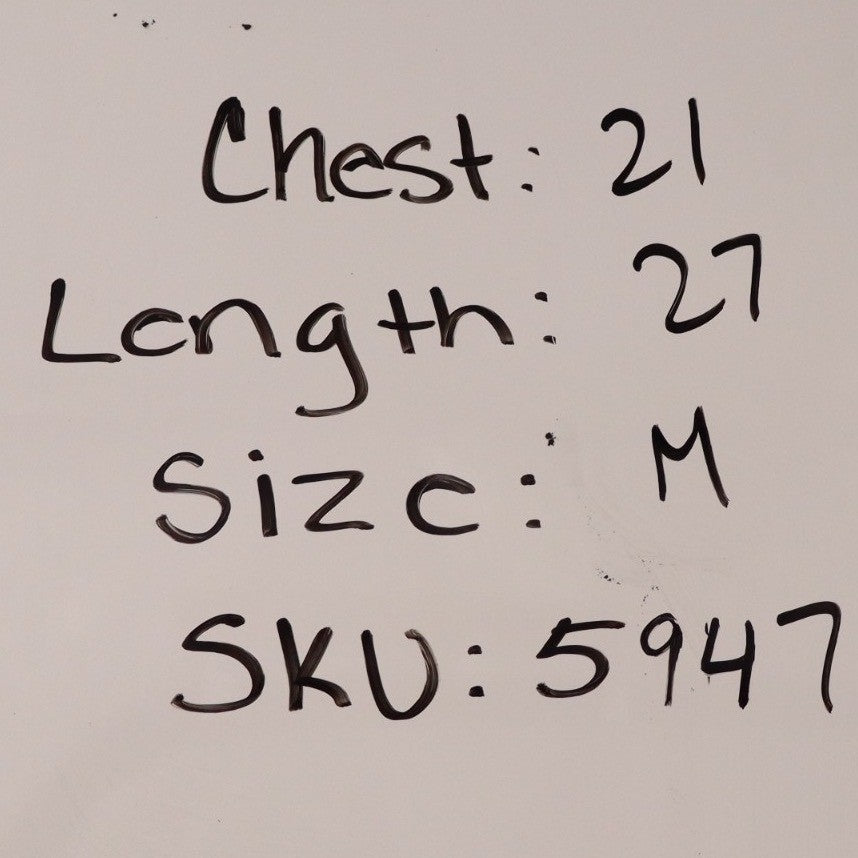 Chest: 21
Length: 27
Size: M
SKU: 5947